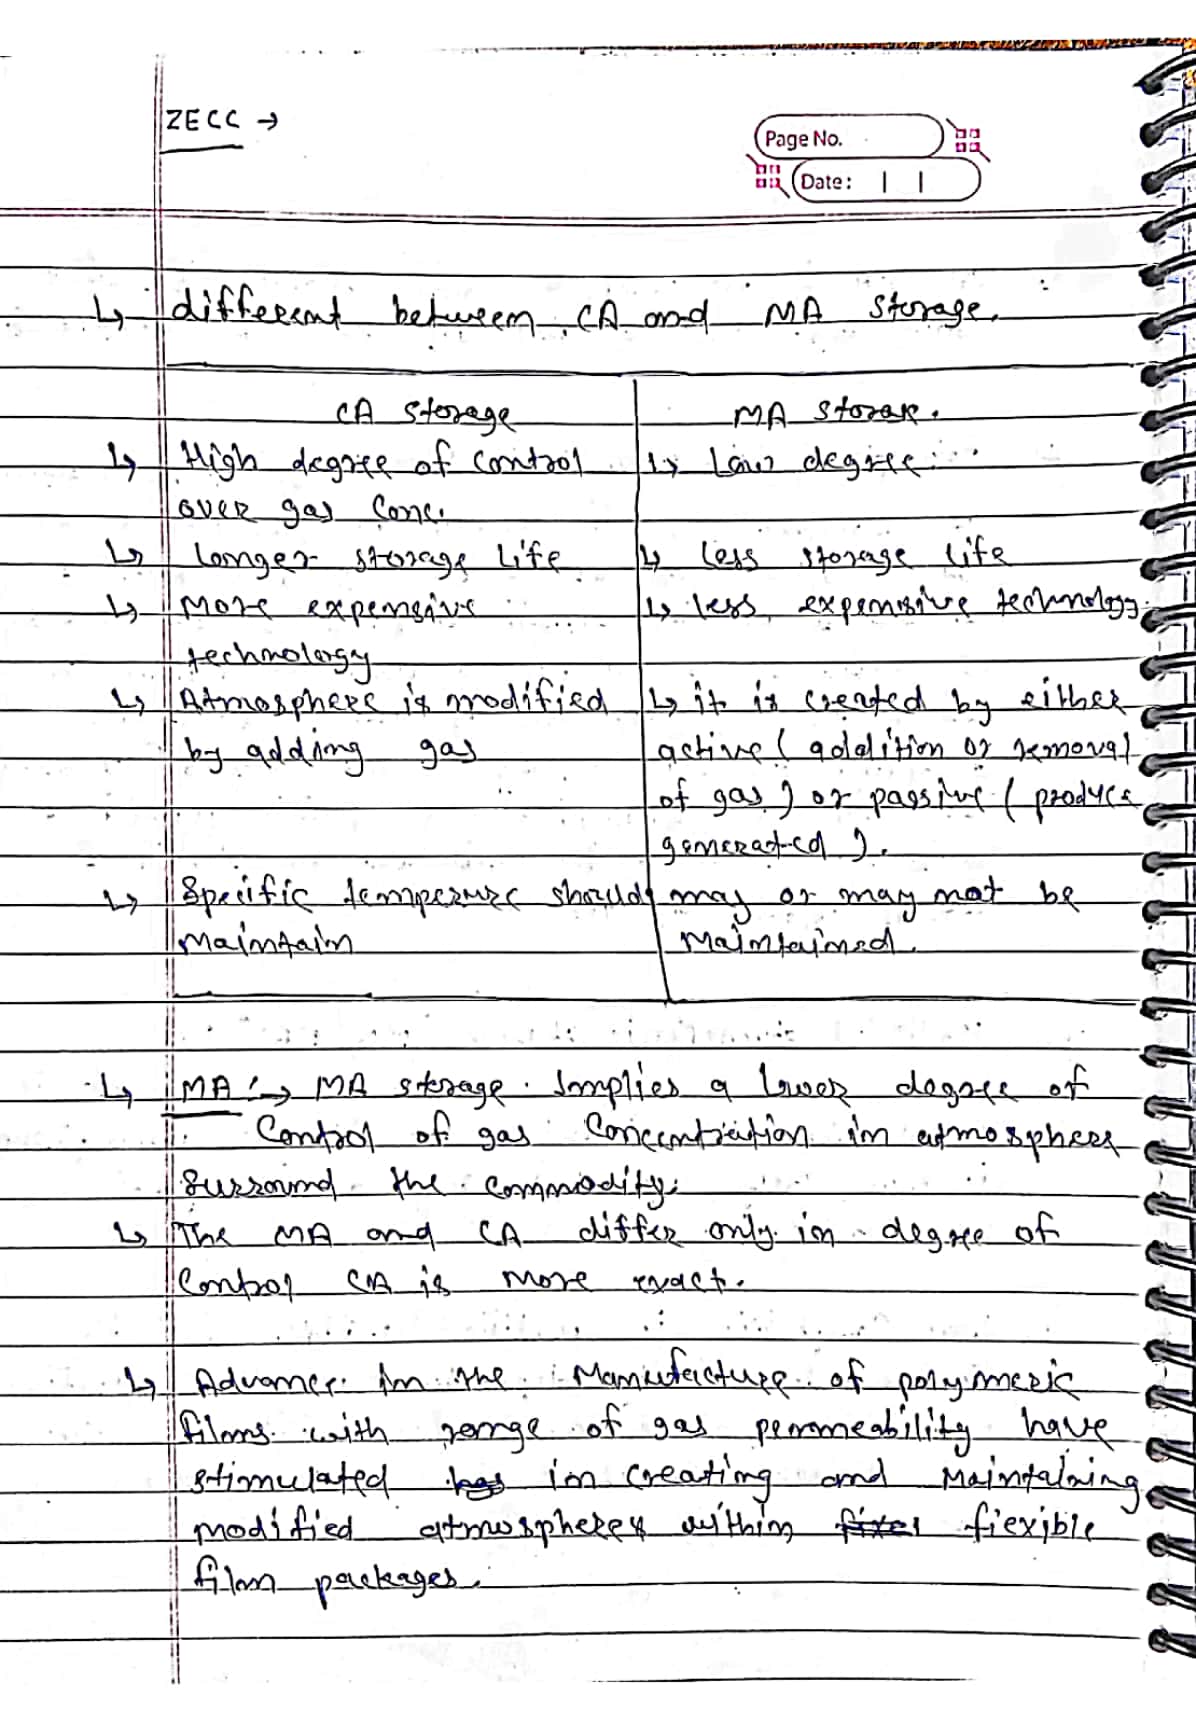 ZECC →
Page No.
Date: | |
↳ different between CA and MA Storage.
CA Storage | MA Storae.
↳ High degree of control | ↳ Low degree
over gas Conc.
↳ longer storage life | ↳ less storage life
↳ More expensive | ↳ less expensive technology.
technolorgy
↳ Atmosphere is modified | ↳ it is created by either
by adding gas | active (addition or removal
of gas) or passive (produce
generated).
↳ Specific temperure should | may or may not be
Maintain | Maintained.
↳ MA :→ MA storage. Implies a lower degree of
Control of gas Concentration in atmosphere
Surround the commodity.
↳ The MA and CA differ only in degree of
Control CA is more exact.
↳ Advance in the Manufacture of polymeric
films with range of gas permeability have
stimulated in creating and Maintaining
modified atmospheres within flexible
film packages.